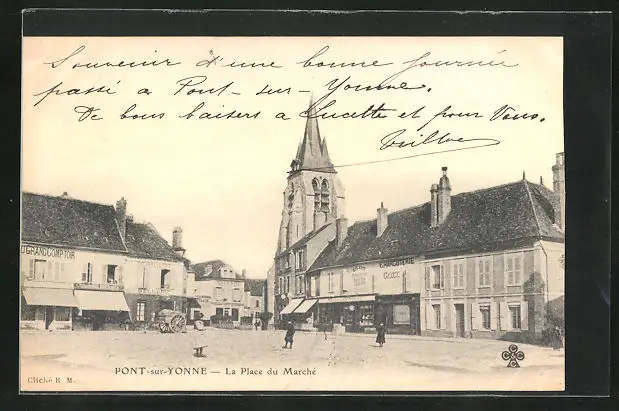 Souvenir d'une bonne journée
passé a Pont-sur-Yonne.
De bons baisers a Lucette et pour Vous.
GRAND COMPTOIR
CHARCUTERIE
PONT-sur-YONNE — La Place du Marché
Cliché R M.
CCCC